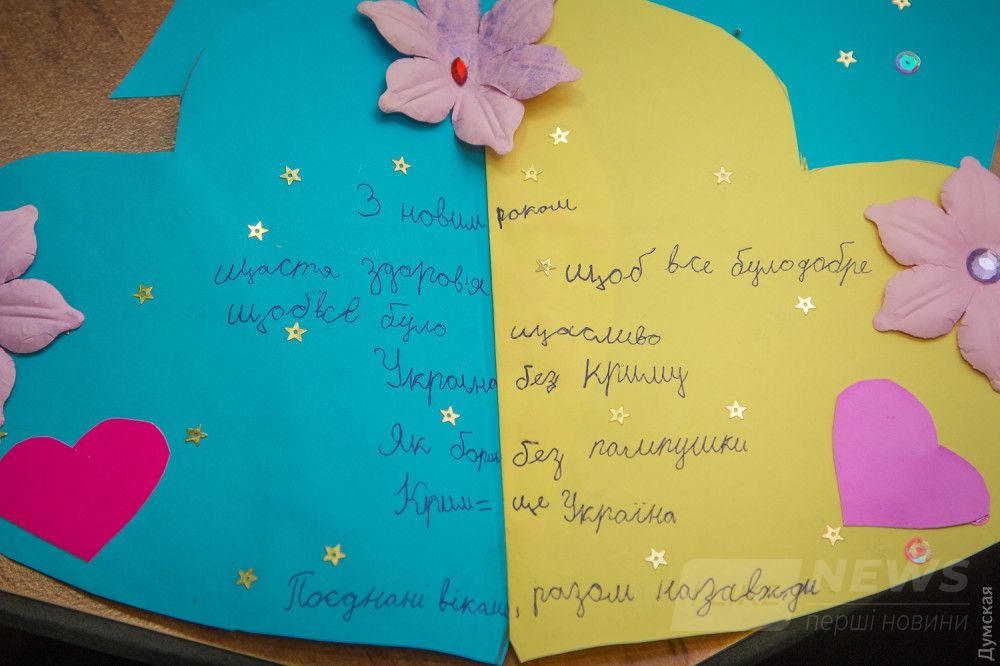 З новим роком
щастя здоров'я щоб все булодобре
щобвсє було щасливо
Україна без Криму
Як борщ без пампушки
Крим= ще Україна
Поєднані віками, разом назавжди
NEWS
перші новини
Думская